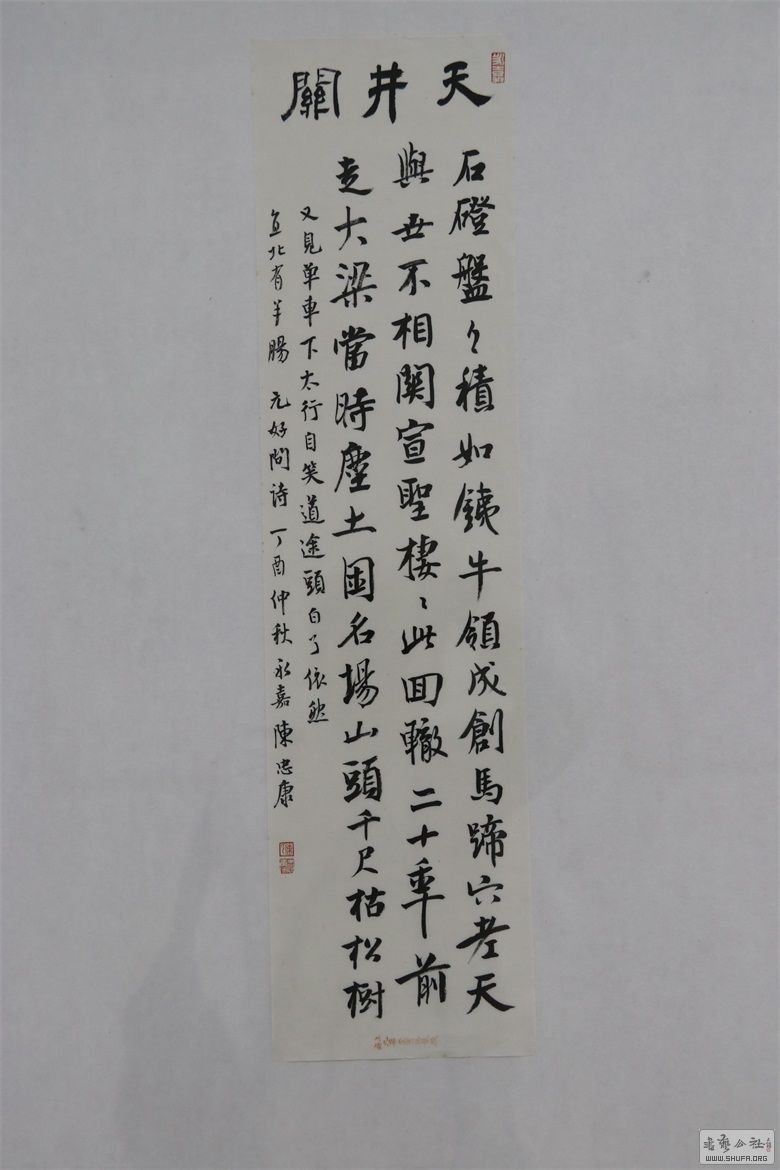 天井關
石磴盤々積如鐵牛領成創馬蹄穴老天
與世不相関宣聖棲々此回轍二十年前
走大梁當時塵土困名場山頭千尺枯松樹
又見單車下太行自笑道途頭白了依然
直北有羊腸 元好問詩 丁酉仲秋永嘉陳忠康
書藝公社
WWW.SHUFA.ORG